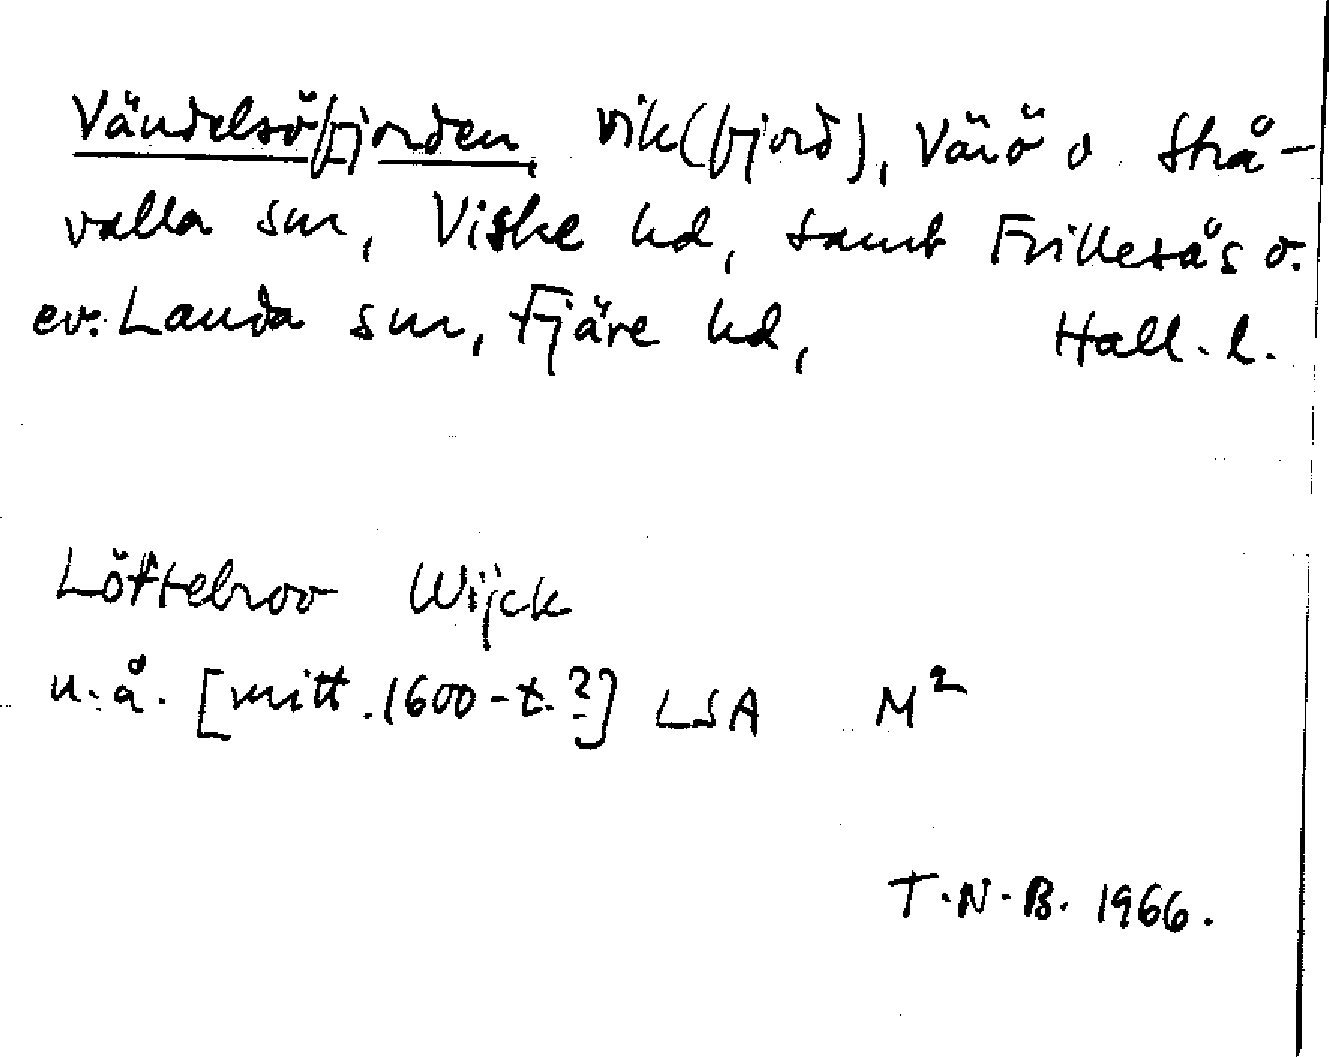 Vändelsöfjorden, vik (fjord), Värö o Strå-
valla snr, Viske hd, samt Frillesås o.
ev. Landa snr, Fjäre hd, Hall. l.
Löftebroo Wijck
u.å. [mitt. 1600-t.?] LSA M²
T.N.B. 1966.